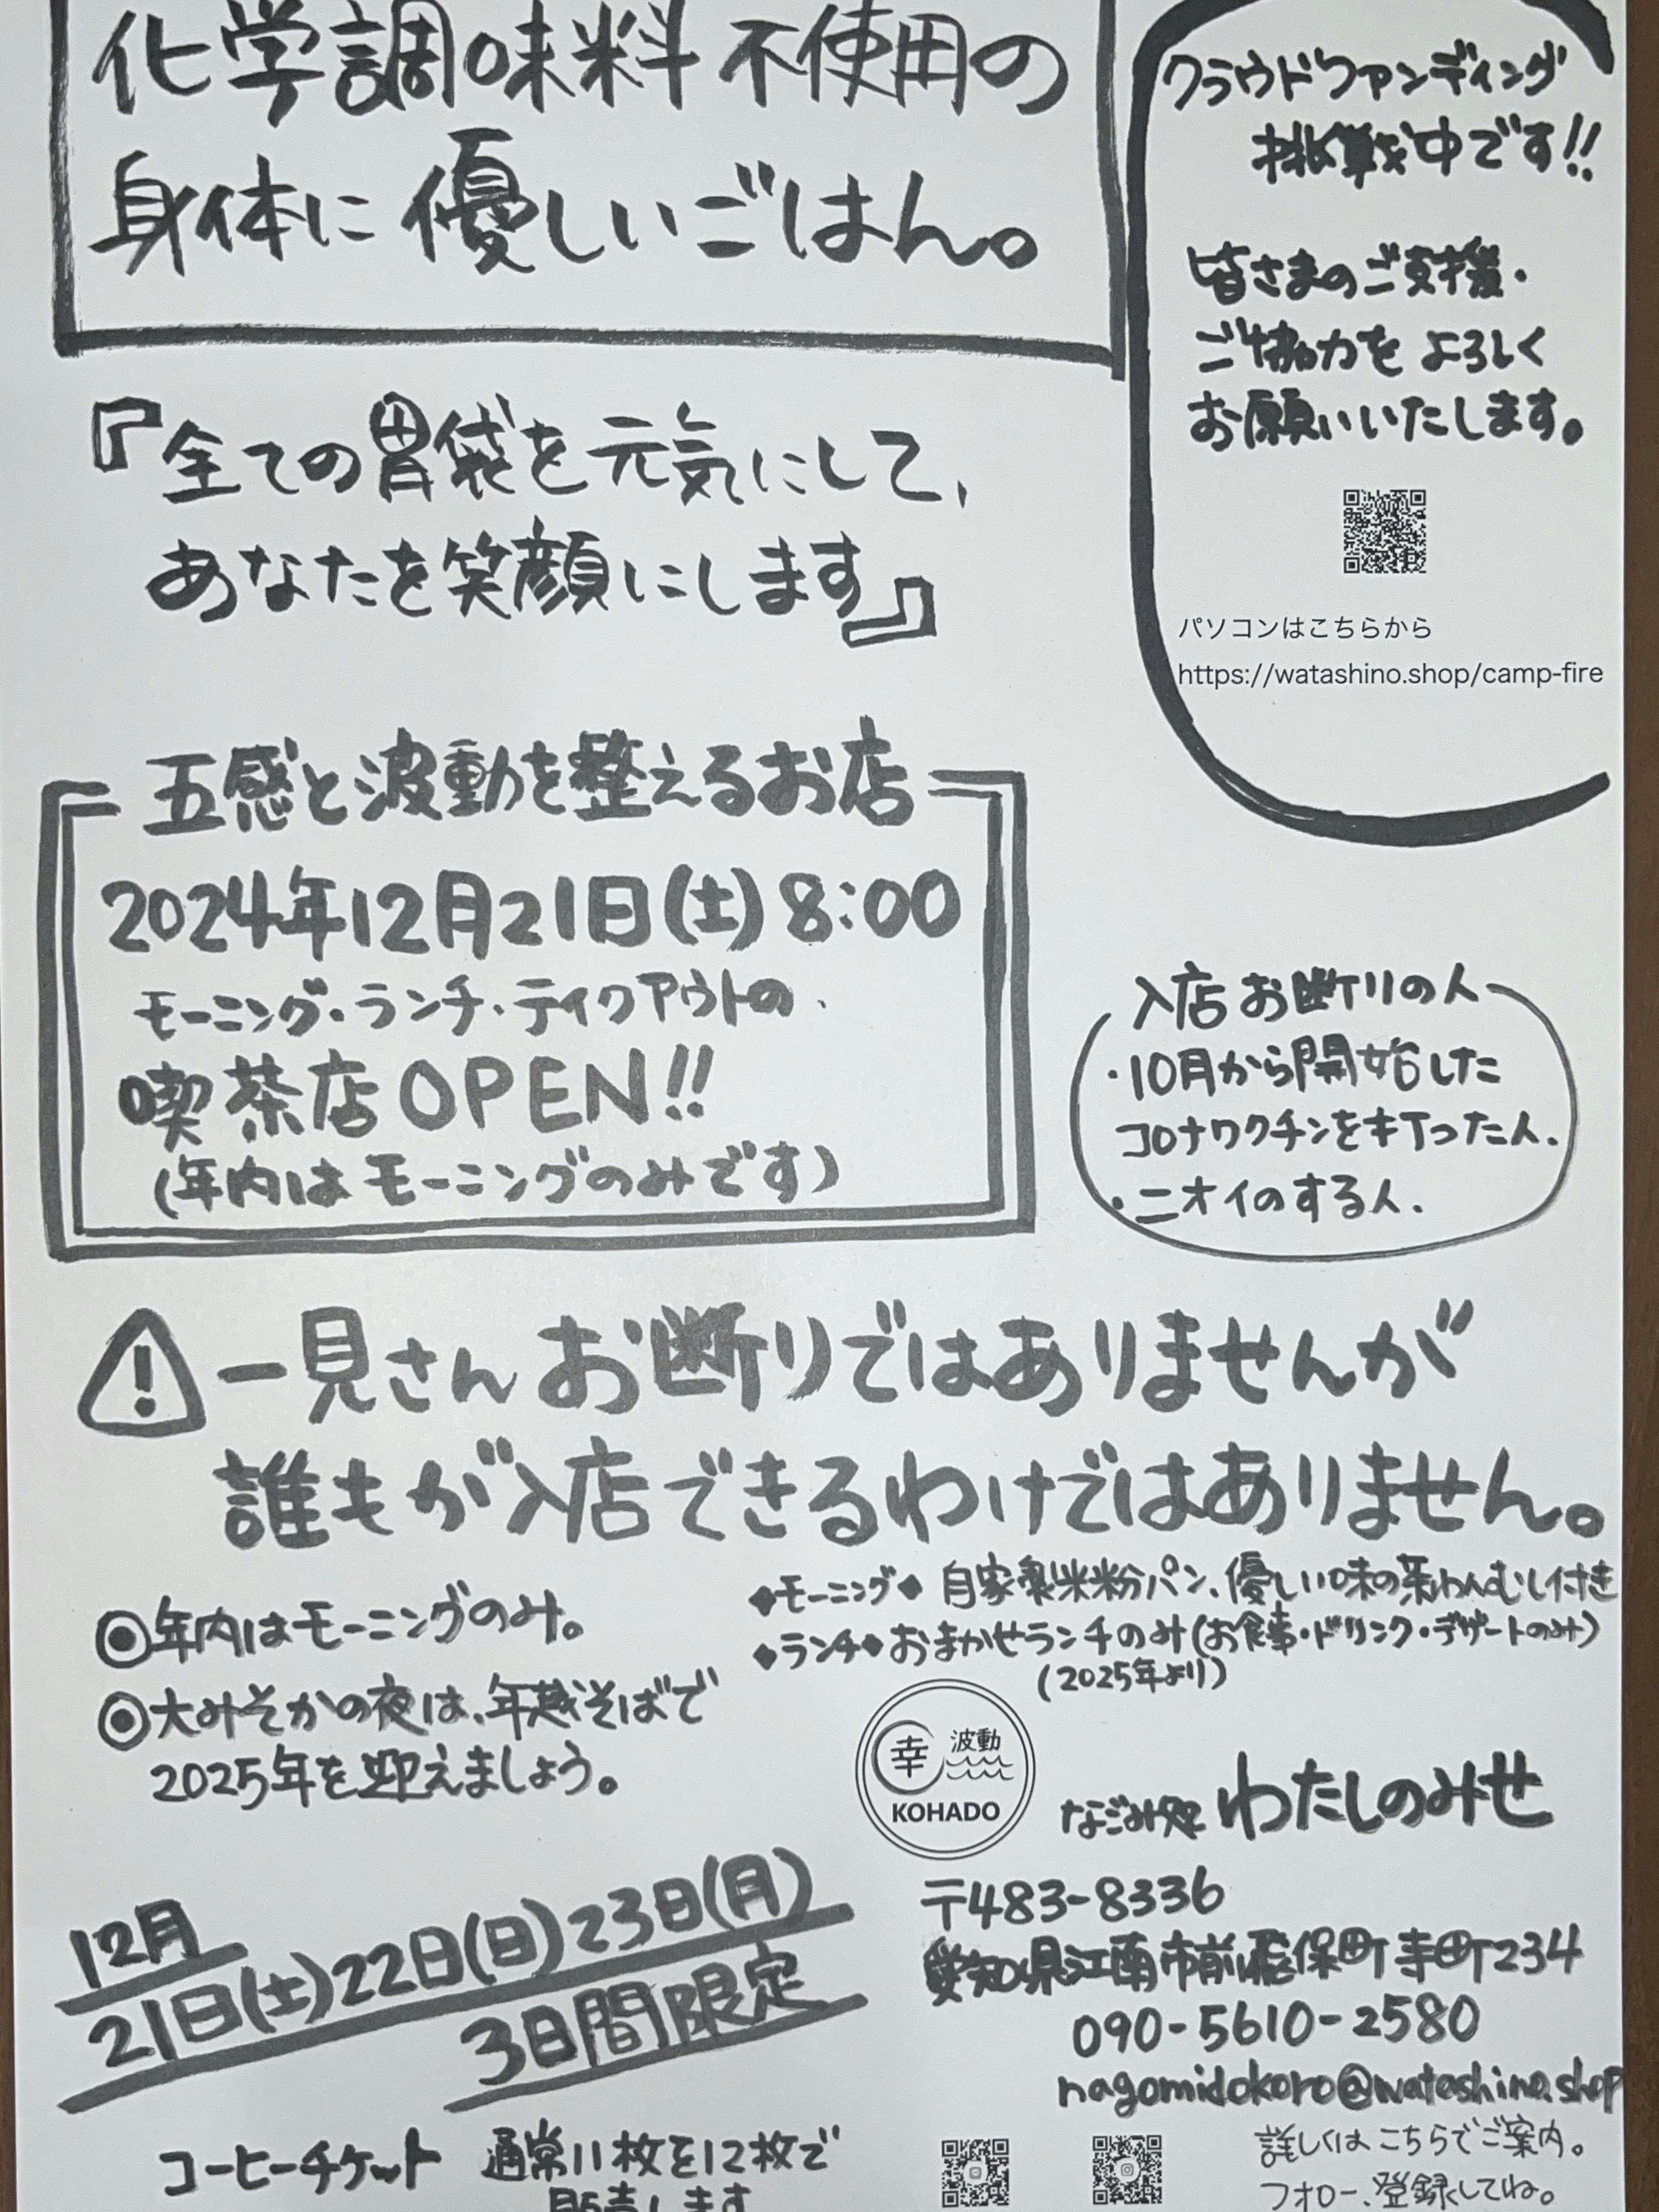 化学調味料不使用の
身体に優しいごはん。
クラウドファンディング
挑戦中です!!
皆さまのご支援・
ご協力をよろしく
お願いいたします。
パソコンはこちらから
https://watashino.shop/camp-fire
『全ての胃袋を元気にして、
あなたを笑顔にします』
五感と波動を整えるお店
2024年12月21日(土)8:00
モーニング・ランチ・テイクアウトの
喫茶店OPEN!!
(年内はモーニングのみです)
入店お断りの人
・10月から開始した
コロナワクチンを打った人.
・ニオイのする人.
一見さんお断りではありませんが
誰もが入店できるわけではありません。
◎年内はモーニングのみ。
◎大みそかの夜は、年越そばで
2025年を迎えましょう。
◆モーニング◆ 自家製米粉パン、優しい味の茶わんむし付き
◆ランチ◆おまかせランチのみ(お食事・ドリンク・デザートのみ)
(2025年より)
幸 波動
KOHADO
なごみ処 わたしのみせ
〒483-8336
愛知県江南市前飛保町寺町234
090-5610-2580
nagomidokoro@watashino.shop
詳しくはこちらでご案内。
フォロー、登録してね。
12月
21日(土)22日(日)23日(月)
3日間限定
コーヒーチケット 通常11枚を12枚で
販売します